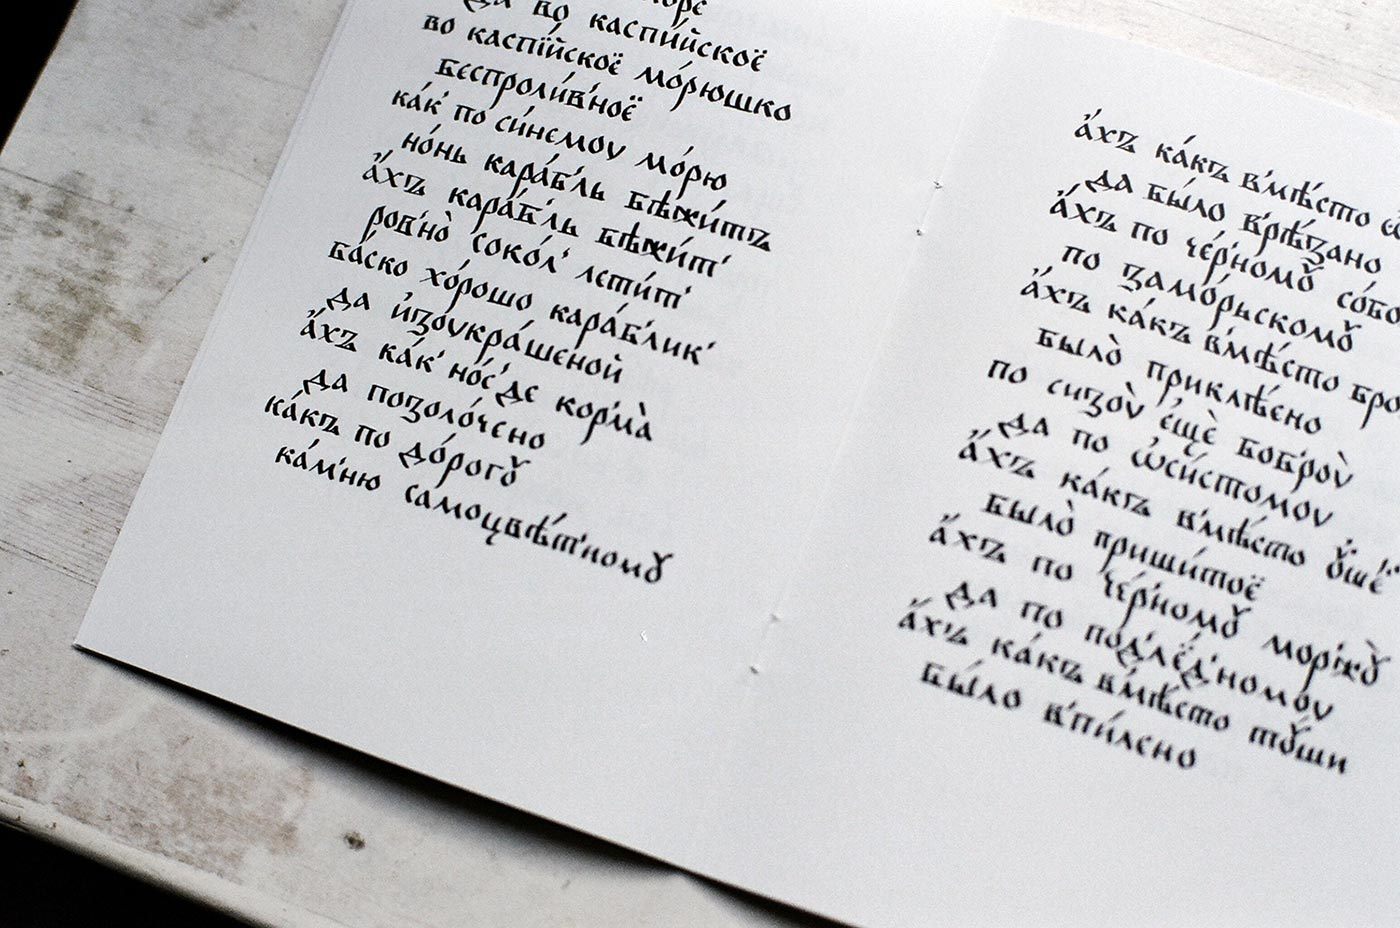 да во каспи́йскоё
во каспі́йскоё мо́рюшко
беспроли́в'ноё
ка́к' по си́немоу мо́рю
но́нь кара́б'ль бѣжи́тъ
а҆́хъ кара́б'ль бѣжи́т'
ров'но̀ соко́л' лети́т'
ба́ско хо́рошо кара́б'лик'
да и҆зоукра́шеной
а҆́хъ ка́к' но́с' де кор'ма̀
да позоло́чено
ка́къ по до́рогꙋ
ка́м'ню самоцвѣ́т'номꙋ
а҆́хъ ка́къ в'мѣ́сто
да бы́ло в'рѣ́зано
а҆́хъ по че́р'номꙋ
по замо́рьскомꙋ
а҆́хъ ка́къ в'мѣ́сто
было̀ приклѣ́ено
по сизоу̀ е҆щѐ боб'роу̀
да по ѡси́стомоу
а҆́хъ ка́къ в'мѣ́сто
было̀ приши́тоё
а҆́хъ по че́р'номꙋ мор'жꙋ̀
да по под'лёд'номоу
а҆́хъ ка́къ в'мѣ́сто тꙋши
бы́ло в'пи́лено